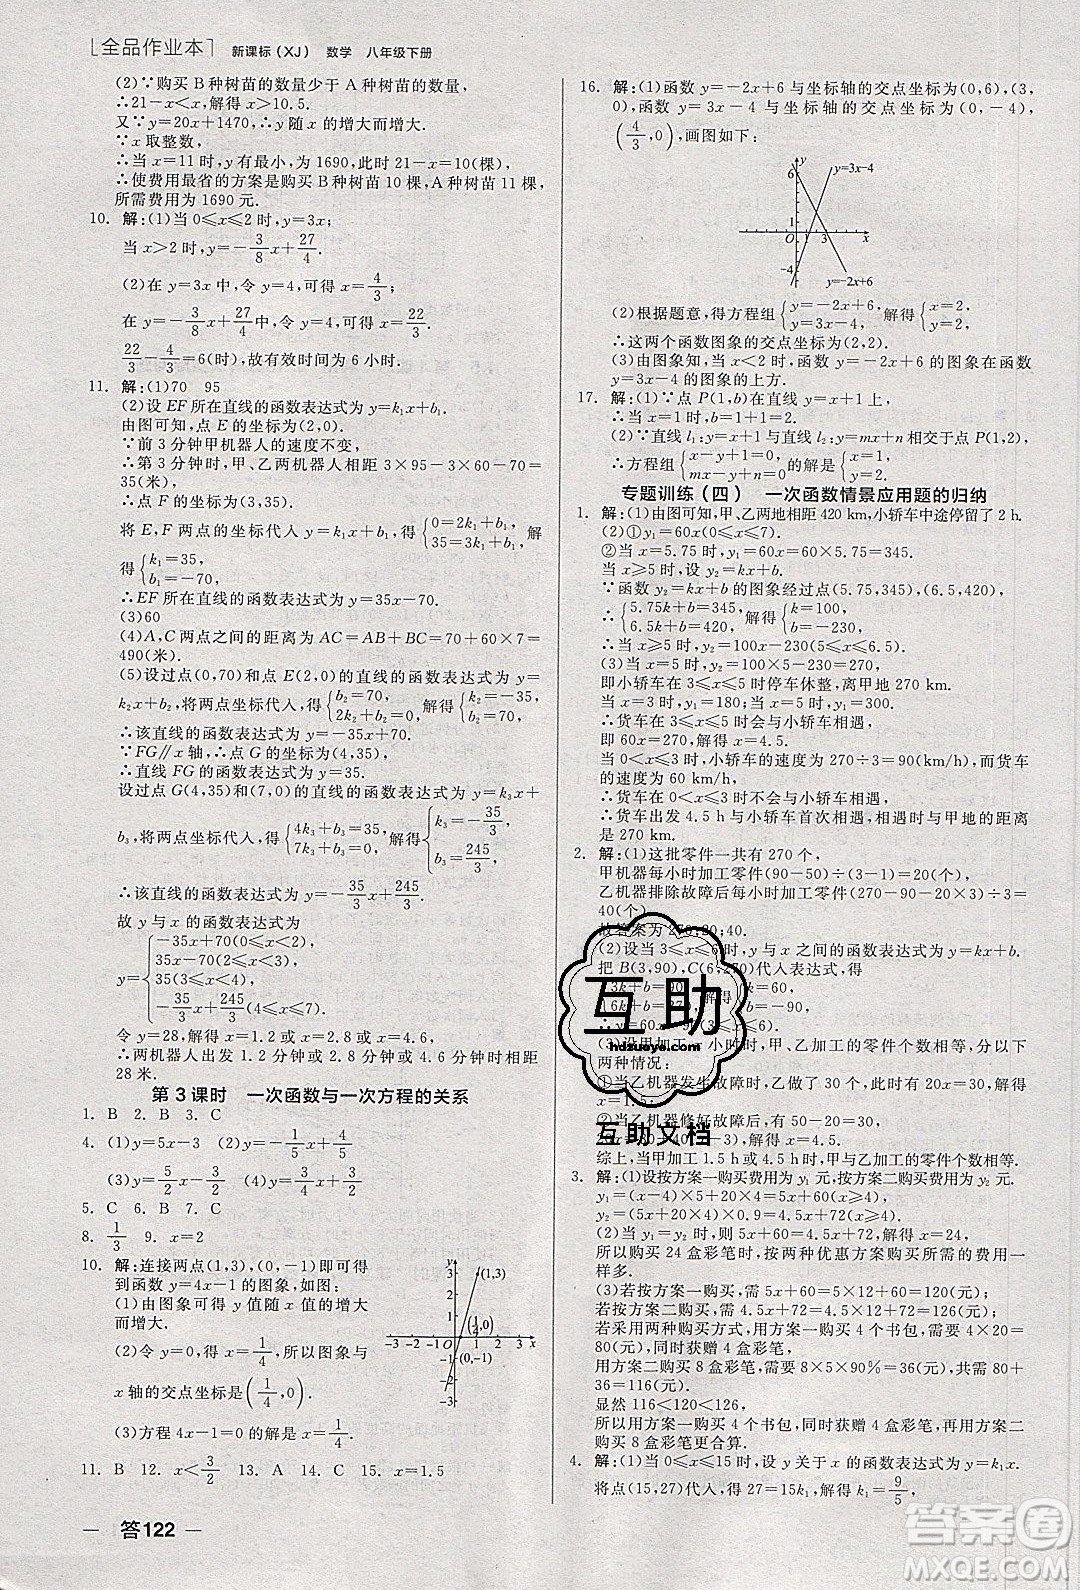 [全品作业本] 新课标(XJ) 数学 八年级下册
(2)∵购买B种树苗的数量少于A种树苗的数量,
∴21-x<x,解得x>10.5.
又∵y=20x+1470,∴y随x的增大而增大.
∵x取整数,
∴当x=11时,y有最小为1690,此时21-x=10(棵).
∴使费用最省的方案是购买B种树苗10棵,A种树苗11棵,
所需费用为1690元.
10. 解:(1)当0≤x≤2时,y=3x;
当x>2时,y=-3/8x+27/4.
(2)在y=3x中,令y=4,可得x=4/3;
在y=-3/8x+27/4中,令y=4,可得x=22/3.
22/3-4/3=6(时),故有效时间为6小时.
11. 解:(1)70 95
(2)设EF所在直线的函数表达式为y=k₁x+b₁.
由图可知,点E的坐标为(2,0).
∵前3分钟甲机器人的速度不变,
∴第3分钟时,甲、乙两机器人相距3×95-3×60-70=
35(米),
∴点F的坐标为(3,35).
将E,F两点的坐标代入y=k₁x+b₁,得{0=2k₁+b₁, 35=3k₁+b₁,解
得{k₁=35, b₁=-70,
∴EF所在直线的函数表达式为y=35x-70.
(3)60
(4)A,C两点之间的距离为AC=AB+BC=70+60×7=
490(米).
(5)设过点(0,70)和点E(2,0)的直线的函数表达式为y=
k₂x+b₂,将两点坐标代入,得{b₂=70, 2k₂+b₂=0,解得{b₂=70, k₂=-35,
∴该直线的函数表达式为y=-35x+70.
∵FG∥x轴,∴点G的坐标为(4,35),
∴直线FG的函数表达式为y=35.
设过点G(4,35)和(7,0)的直线的函数表达式为y=k₃x+
b₃,将两点坐标代入,得{4k₃+b₃=35, 7k₃+b₃=0,解得{k₃=-35/3, b₃=245/3,
∴该直线的函数表达式为y=-35/3x+245/3.
故y与x的函数表达式为
y={-35x+70(0≤x<2), 35x-70(2≤x<3), 35(3≤x<4), -35/3x+245/3(4≤x≤7).
令y=28,解得x=1.2或x=2.8或x=4.6.
∴两机器人出发1.2分钟或2.8分钟或4.6分钟时相距
28米.
第3课时 一次函数与一次方程的关系
1. B 2. B 3. C
4. (1)y=5x-3 (2)y=-1/2x+1/2
(3)y=2/3x-1/3 (4)y=1/2x+1/2
5. C 6. B 7. C
8. 1/3 9. x=2
10. 解:连接两点(1,3),(0,-1)即可得
到函数y=4x-1的图象,如图:
(1)由图象可得y值随x值的增大
而增大.
(2)令y=0,解得x=1/4,
故x轴的交点坐标是(1/4,0).
(3)方程4x-1=0的解是x=1/4.
y 4 3 2 1 (1,3) (1/4,0) -3 -2 -1 O 1 2 3 x -1 (0,-1) -2 -3
11. B 12. x<3/2 13. A 14. C 15. x=1.5
— 答122 —
16. 解:(1)函数y=-2x+6与坐标轴的交点坐标为(0,6),(3,
0),函数y=3x-4与坐标轴的交点坐标为(0,-4),
(4/3,0),画图如下:
y 6 y=3x-4 1 O 1 3 x -4 y=-2x+6
(2)根据题意,得方程组{y=-2x+6, y=3x-4,解得{x=2, y=2,
∴这两个函数图象的交点坐标为(2,2).
(3)由图象知,当x<2时,函数y=-2x+6的图象在函数
y=3x-4的图象的上方.
17. 解:(1)∵点P(1,b)在直线y=x+1上,
∴当x=1时,b=1+1=2.
(2)∵直线l₁:y=x+1与直线l₂:y=mx+n相交于点P(1,2),
∴方程组{x-y+1=0, mx-y+n=0的解是{x=1, y=2.
专题训练(四) 一次函数情景应用题的归纳
1. 解:(1)由图可知,甲、乙两地相距420 km,小轿车中途停留了2 h.
(2)①y₁=60x(0≤x≤7).
②当x=5.75时,y₁=60x=60×5.75=345.
当x≥5时,设y₂=kx+b.
∵函数y₂=kx+b的图象经过点(5.75,345),(6.5,420),
∴{5.75k+b=345, 6.5k+b=420,解得{k=100, b=-230,
∴当x≥5时,y₂=100x-230(5≤x≤6.5).
(3)当x=5时,y₂=100×5-230=270,
即小轿车在3≤x≤5时停车休整,离甲地270 km.
当x=3时,y₁=180,当x=5时,y₁=300.
∴货车在3≤x≤5时会与小轿车相遇,
即60x=270,解得x=4.5.
当0<x≤3时,小轿车的速度为270÷3=90(km/h),而货车
的速度为60 km/h,
∴货车在0<x≤3时不会与小轿车相遇,
∴货车出发4.5 h后与小轿车首次相遇,此时与甲地的距离
是270 km.
2. 解:(1)这批零件一共有270个,
甲机器每小时加工零件(90-50)÷(3-1)=20(个),
乙机器排除故障后每小时加工零件(270-90-20×3)÷3=
40(个).
故答案为270;20;40.
(2)设当3≤x≤6时,y与x之间的函数表达式为y=kx+b.
把B(3,90),C(6,270)代入表达式,得
{3k+b=90, 6k+b=270,解得{k=60, b=-90,
∴y=60x-90(3≤x≤6).
(3)设甲加工x小时时,甲、乙加工的零件个数相等,分以下
两种情况:
①当乙机器发生故障时,乙做了30个,20x=30,解得
x=1.5;
②当乙机器修好故障后,根据题意,得
20x=30+40(x-3),解得x=4.5.
综上,当甲加工1.5 h或4.5 h时,甲与乙加工的零件个数相等.
3. 解:(1)设按方案一购买费用为y₁元,按方案二购买费用为y₂元.
y₁=(x-4)×5+20×4=5x+60,
y₂=(5x+20×4)×0.9=4.5x+72.
(2)当y₁=y₂时,即5x+60=4.5x+72,解得x=24,
所以购买24盒彩笔时,两种优惠方案购买所需的费用一
样多.
(3)若按方案一购买,需要5x+60=5×12+60=120(元),
若按方案二购买,需要4.5x+72=4.5×12+72=126(元),
若采用两种购买方式,用方案一购买4个书包,需要4×20=
80(元),同时获赠4盒彩笔,
用方案二购买8盒彩笔,需要8×5×90%=36(元),共需80+
36=116(元).
显然116<120<126.
所以用方案一购买4个书包,同时获赠4盒彩笔,再用方案二
购买8盒彩笔更合算.
4. 解:(1)当0≤x≤15时,设y关于x的函数表达式为y=k₁x.
将点(15,27)代入,得27=15k₁,解得k₁=9/5,
互助
hdzuoye.com
互助文档
答案圈
MXQE.COM